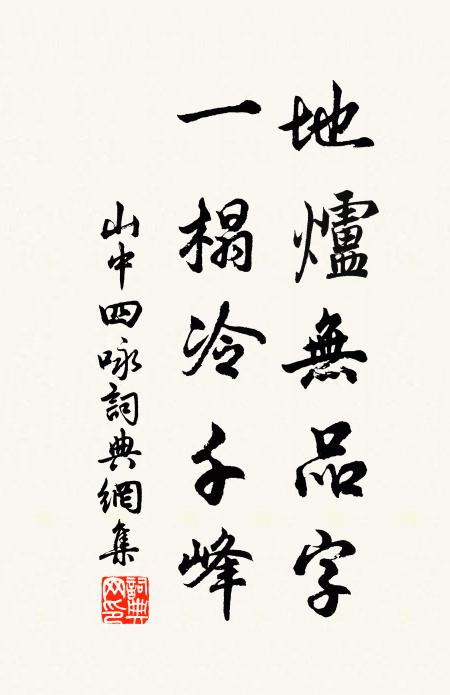 地爐無品字
一榻冷千峰
山中四詠詞典網集
詞典網印